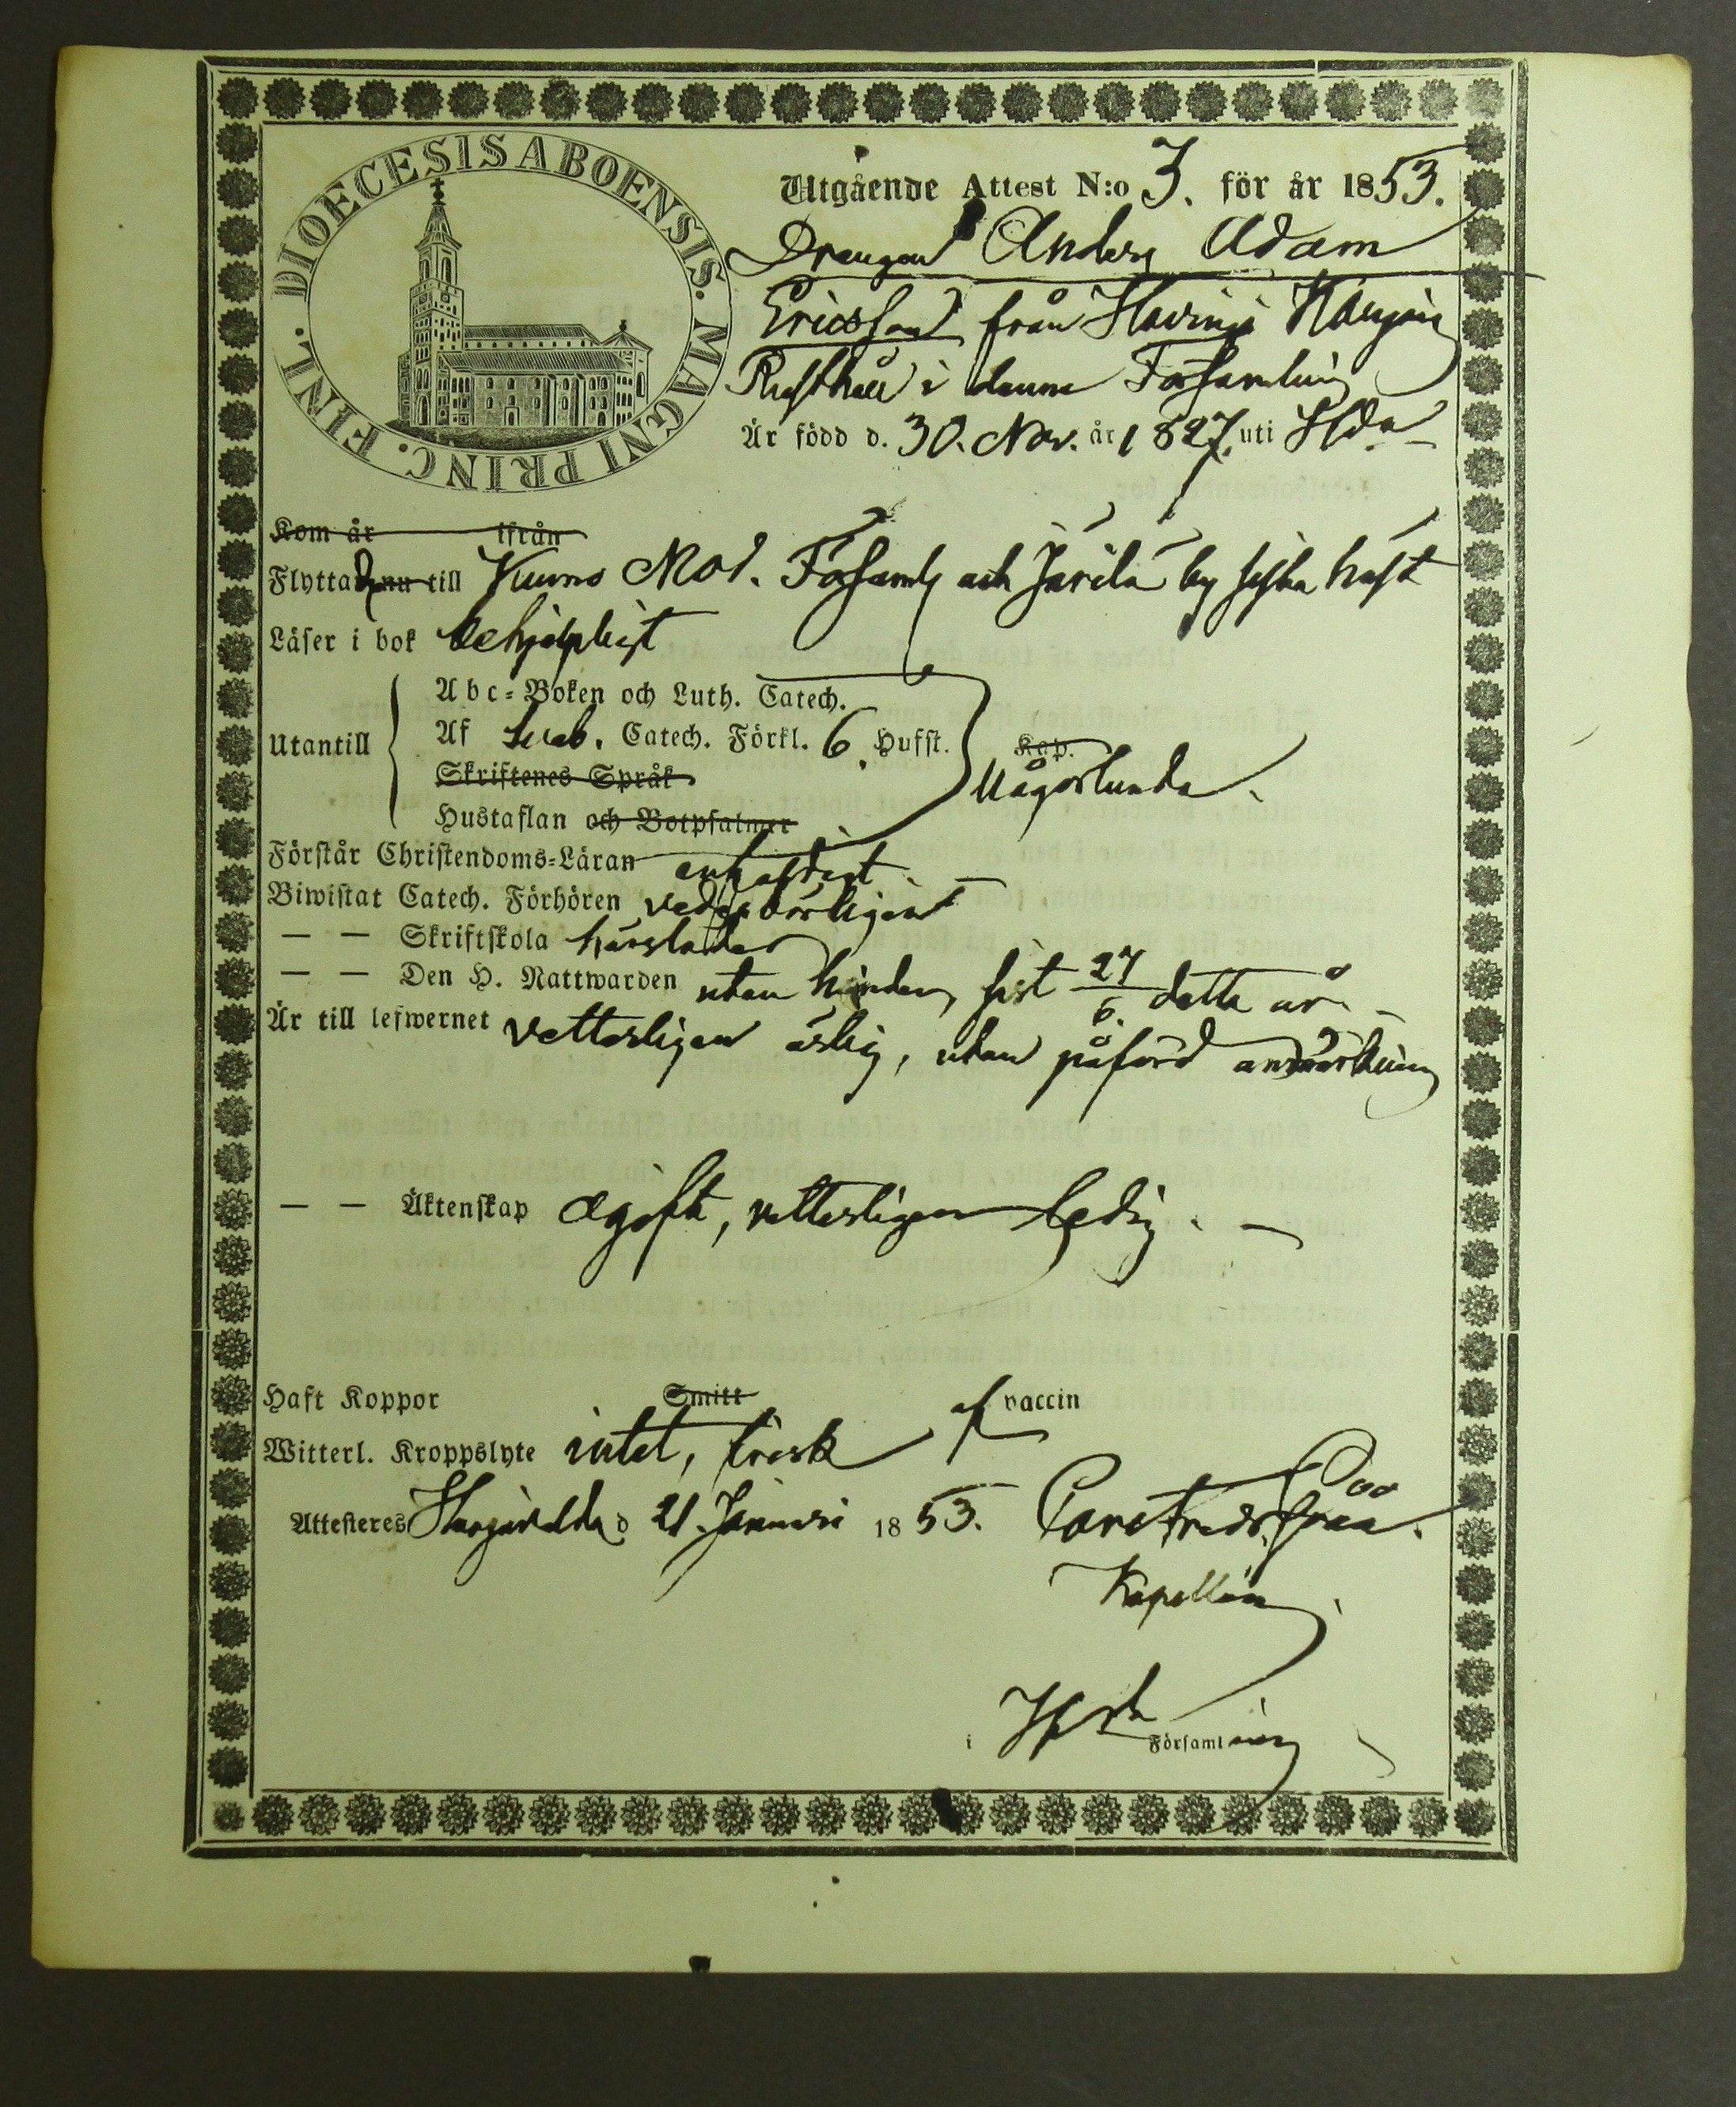 DIOECESIS ABOENSIS. MAGNI PRINC. FINL.
Utgående Attest N:o 3. för år 1853.
Drengen Anders Adam
Ericsson från
Rusthåll i denna Församling
Är född d. 30. Nov. år 1827. uti
Kom år ifrån
Flyttad nu till Kumo Mod. Församl och by sista höst
Läser i bok behjelpligt
Utantill
Abc-Boken och Luth. Catech.
Af Sveb. Catech. Förkl. 6. Hufst. Kap.
Skriftenes Språk någorlunda.
Hustaflan och Botpsalmer
Förstår Christendoms-Läran enfaldigt
Biwistat Catech. Förhören vederbörligen
— — Skriftskola härstädes
— — Den H. Nattwarden utan hinder, sist 27/6. detta år. –
Är till lefwernet vetterligen ärlig, utan påförd anmärkning
— — Äktenskap ogift, vetterligen ledig. —
Haft Koppor Smitt af vaccin
Witterl. Kroppslyte intet, frisk
Attesteres d 21. Januari 1853.
Kapellan
i Församling